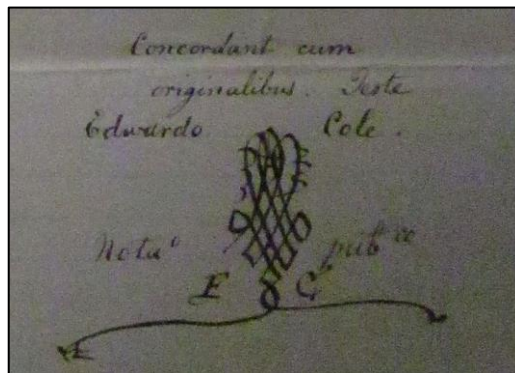 Concordant cum
originalibus. Teste
Edwardo Cole.
Nota^o pub^co
E C